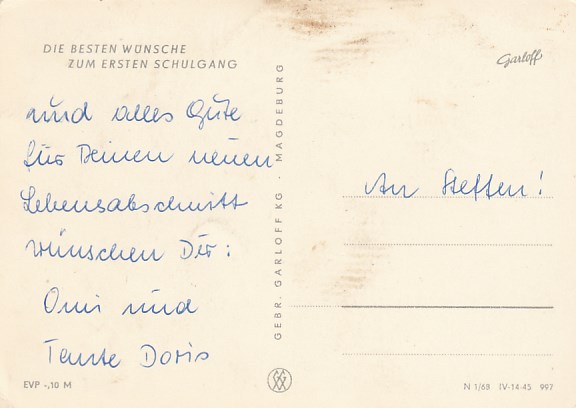 DIE BESTEN WÜNSCHE
ZUM ERSTEN SCHULGANG
und alles Gute
für Deinen neuen
Lebensabschnitt
wünschen Dir:
Omi und
Tante Doris
EVP -,10 M
GEBR. GARLOFF KG · MAGDEBURG
Garloff
An Steffen!
N 1/68 IV-14-45 997